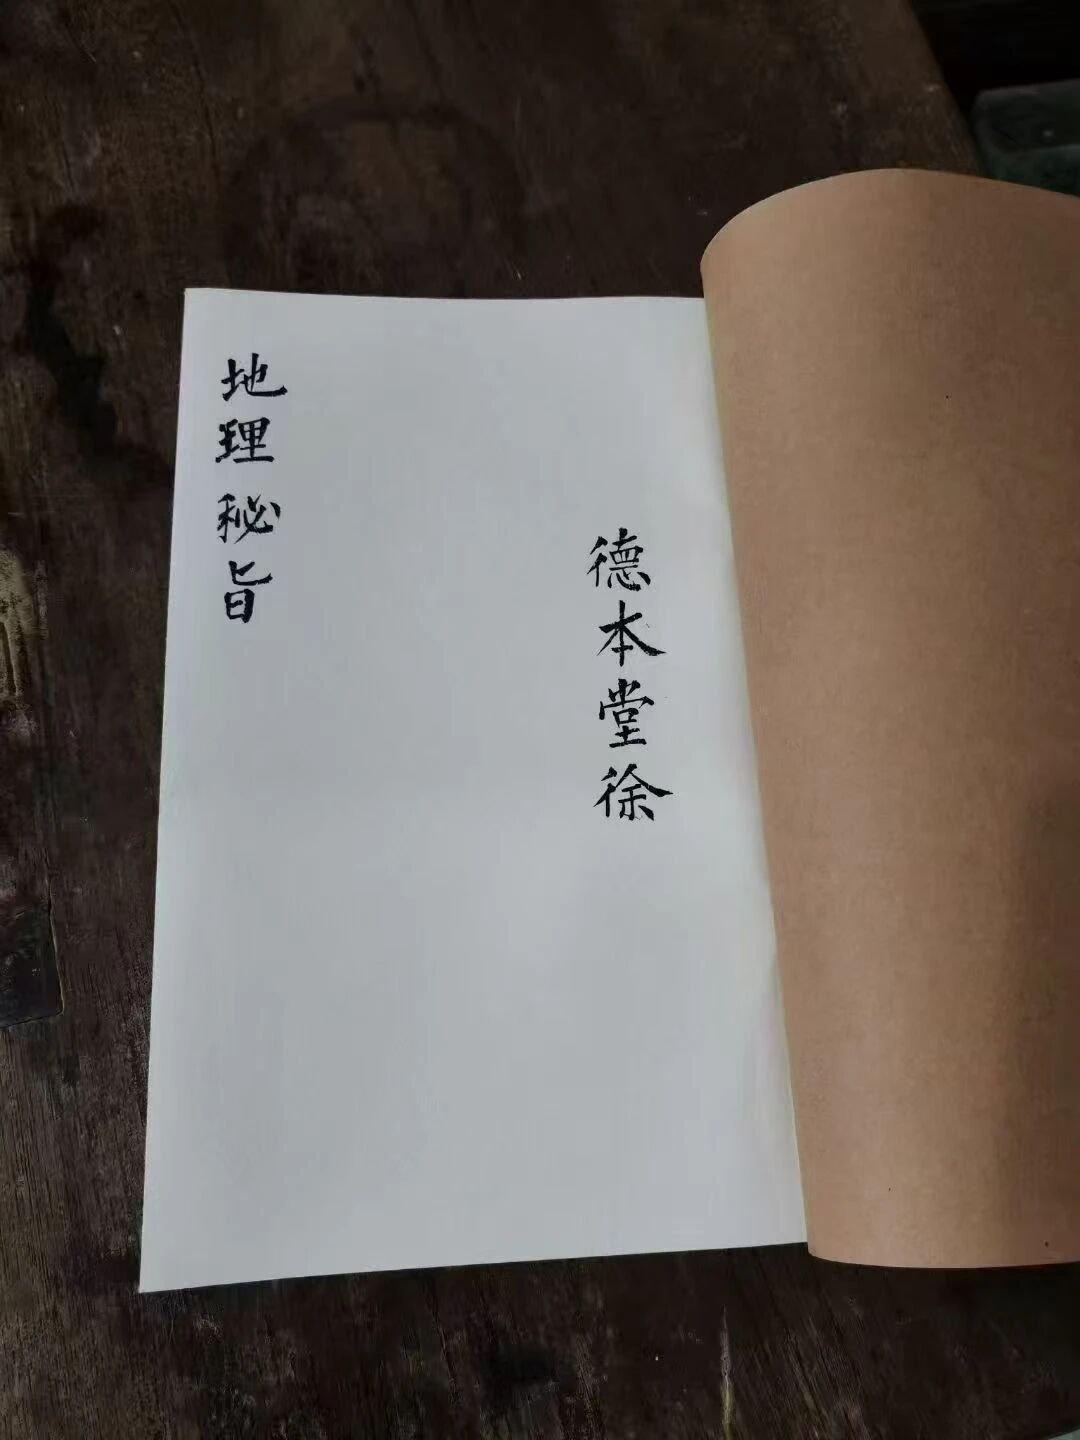 德本堂徐
地理秘旨